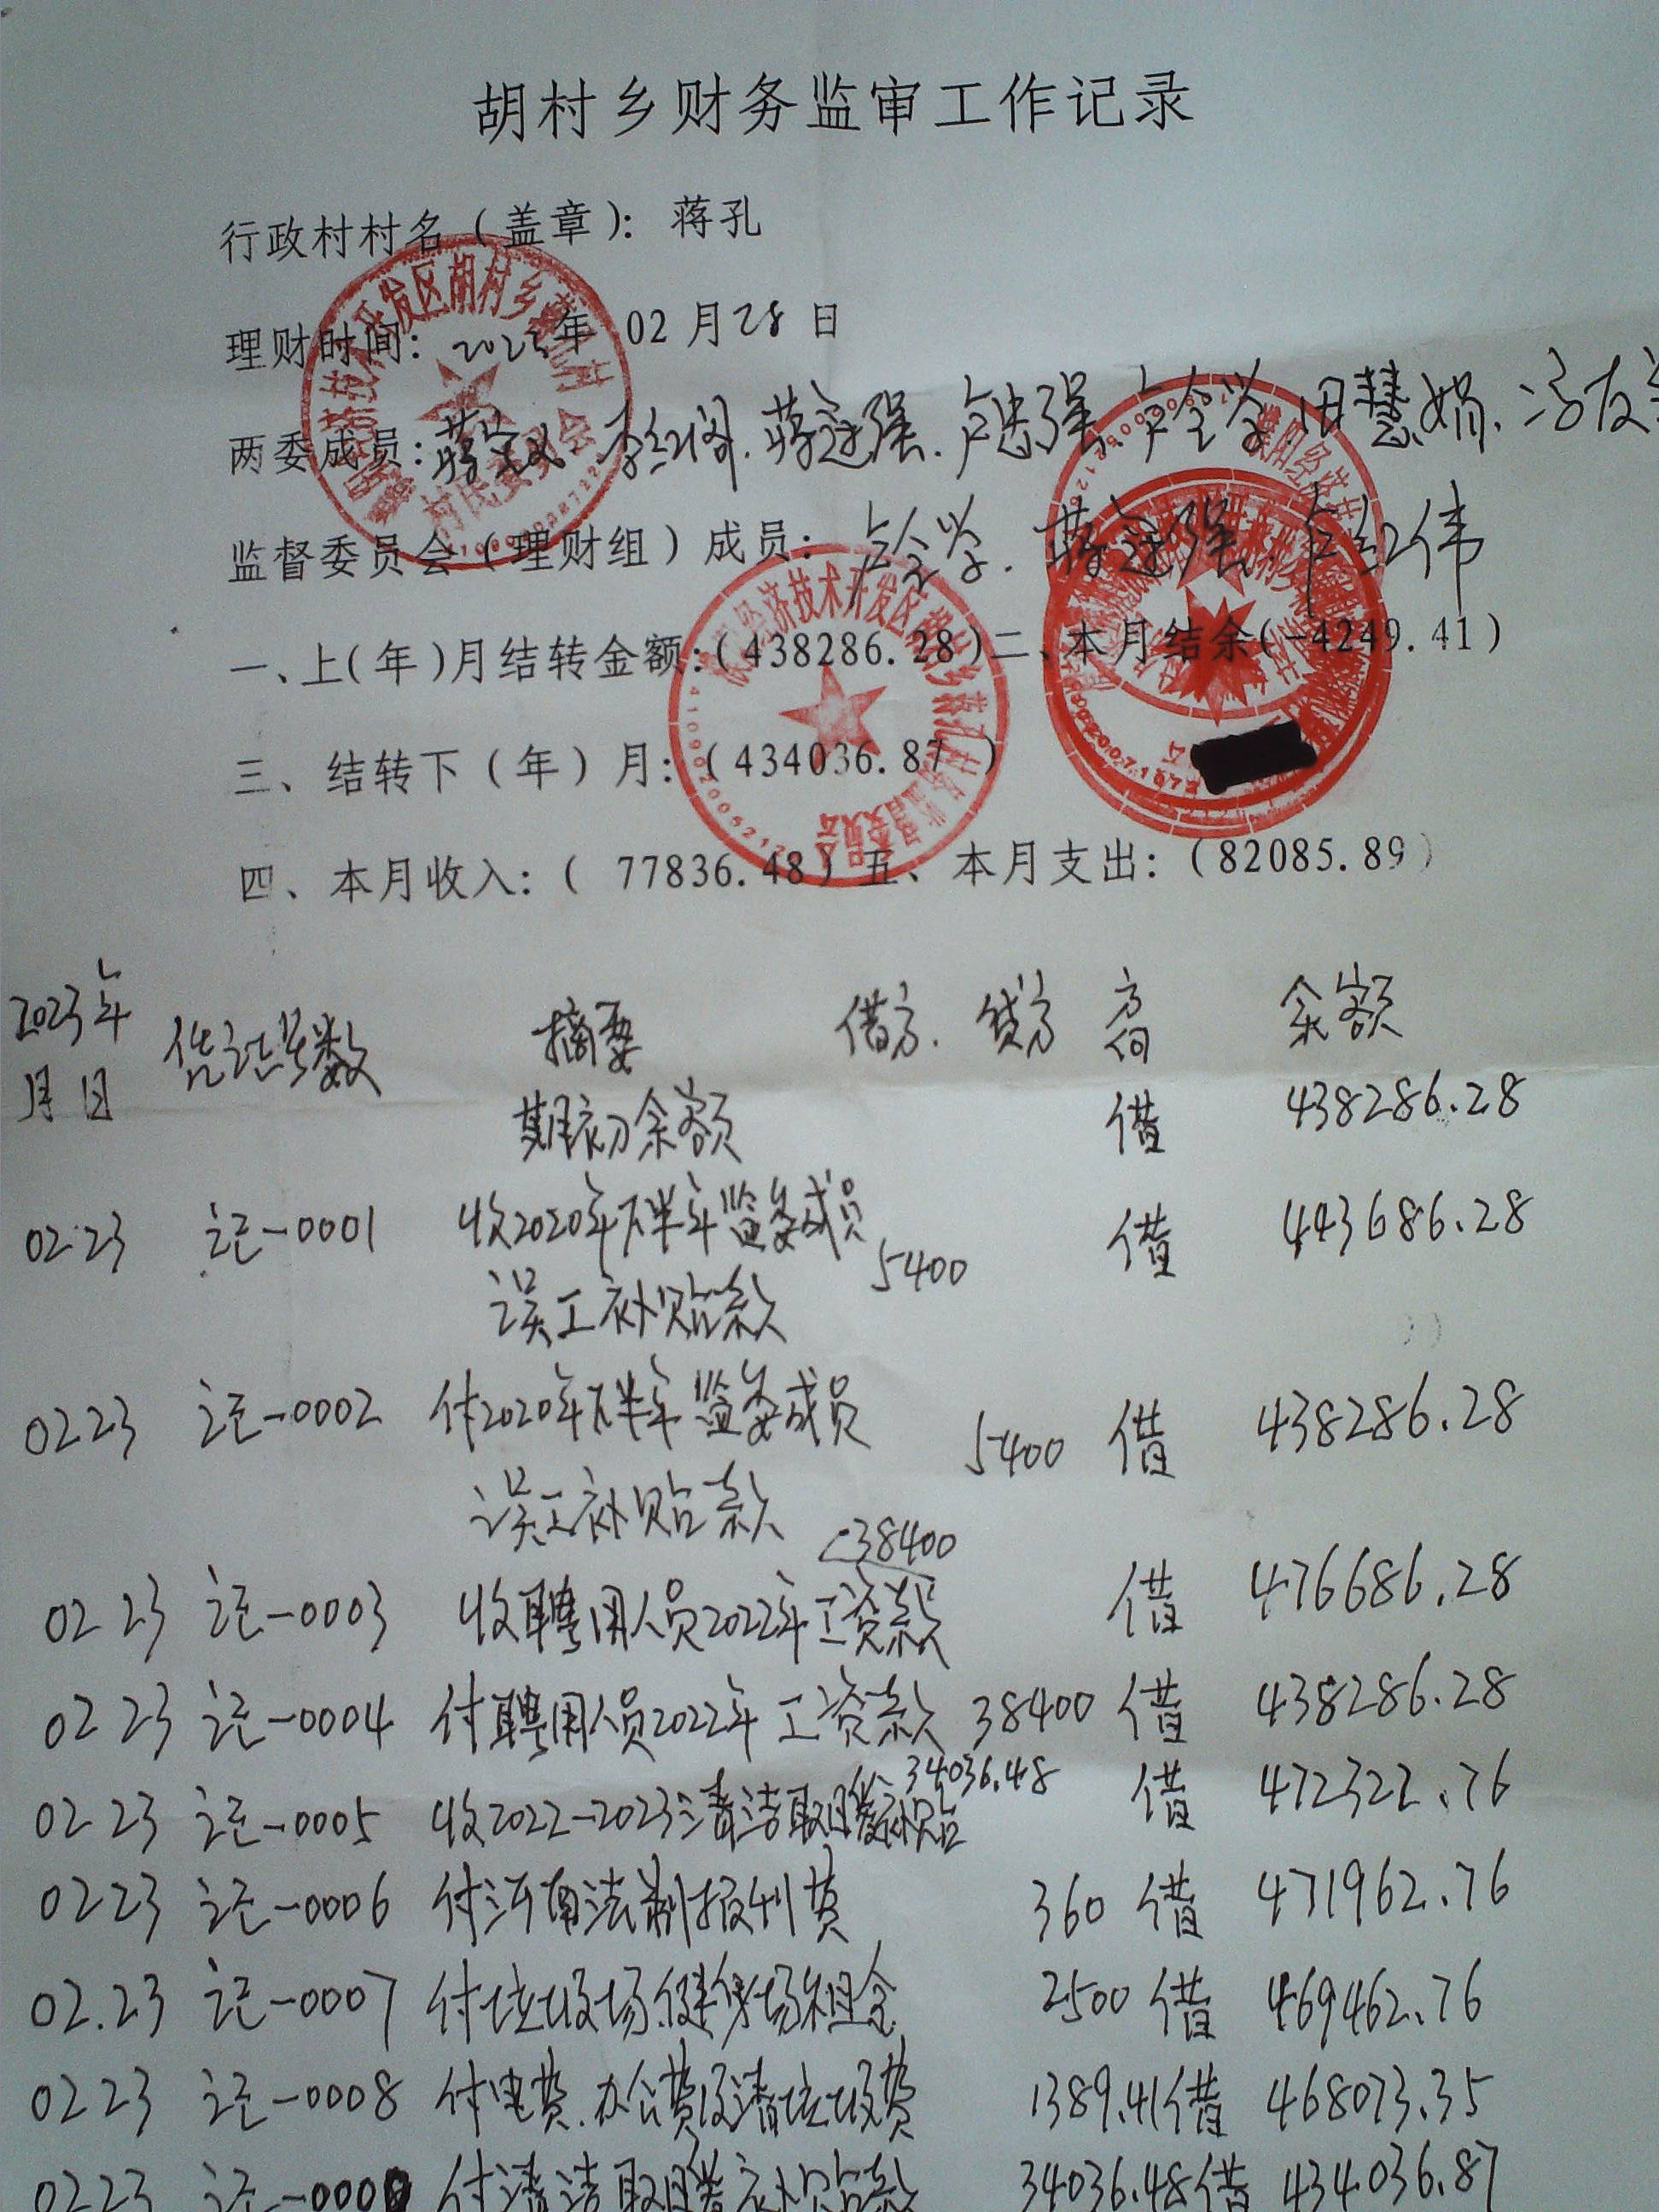 胡村乡财务监审工作记录
行政村村名（盖章）：蒋孔
理财时间：2023年 02月28日
两委成员： 李红阁.蒋运强.卢忠强.卢全学.田慧娟.冯友
监督委员会（理财组）成员：卢全学.蒋运强 卢红伟
一、上(年)月结转金额：(438286.28)二、本月结余(-4249.41)
三、结转下（年）月：（434036.87 ）
四、本月收入：( 77836.48）五、本月支出：(82085.89）
2023年
月 日 凭证号数 摘要 借方. 贷方 方向 余额
期初余额 借 438286.28
02 23 记-0001 收2020年下半年监委成员 5400 借 443686.28
误工补贴款
02 23 记-0002 付2020年下半年监委成员 5400 借 438286.28
误工补贴款
38400
02 23 记-0003 收聘用人员2022年工资款 借 476686.28
02 23 记-0004 付聘用人员2022年工资款 38400 借 438286.28
34036.48
02 23 记-0005 收2022-2023清洁取暖补贴 借 472322.76
02 23 记-0006 付河南法制报刊费 360 借 471962.76
02.23 记-0007 付垃圾场.健身场租金 2500 借 469462.76
02 23 记-0008 付电费.办公费及清垃圾费 1389.41 借 468073.35
02 23 记-000 付清洁取暖补贴款 34036.48 借 434036.87
经济技术开发区胡村乡蒋孔村
村民委员会
经济技术开发区胡村乡蒋孔村村务监督委员会
濮阳经济技术